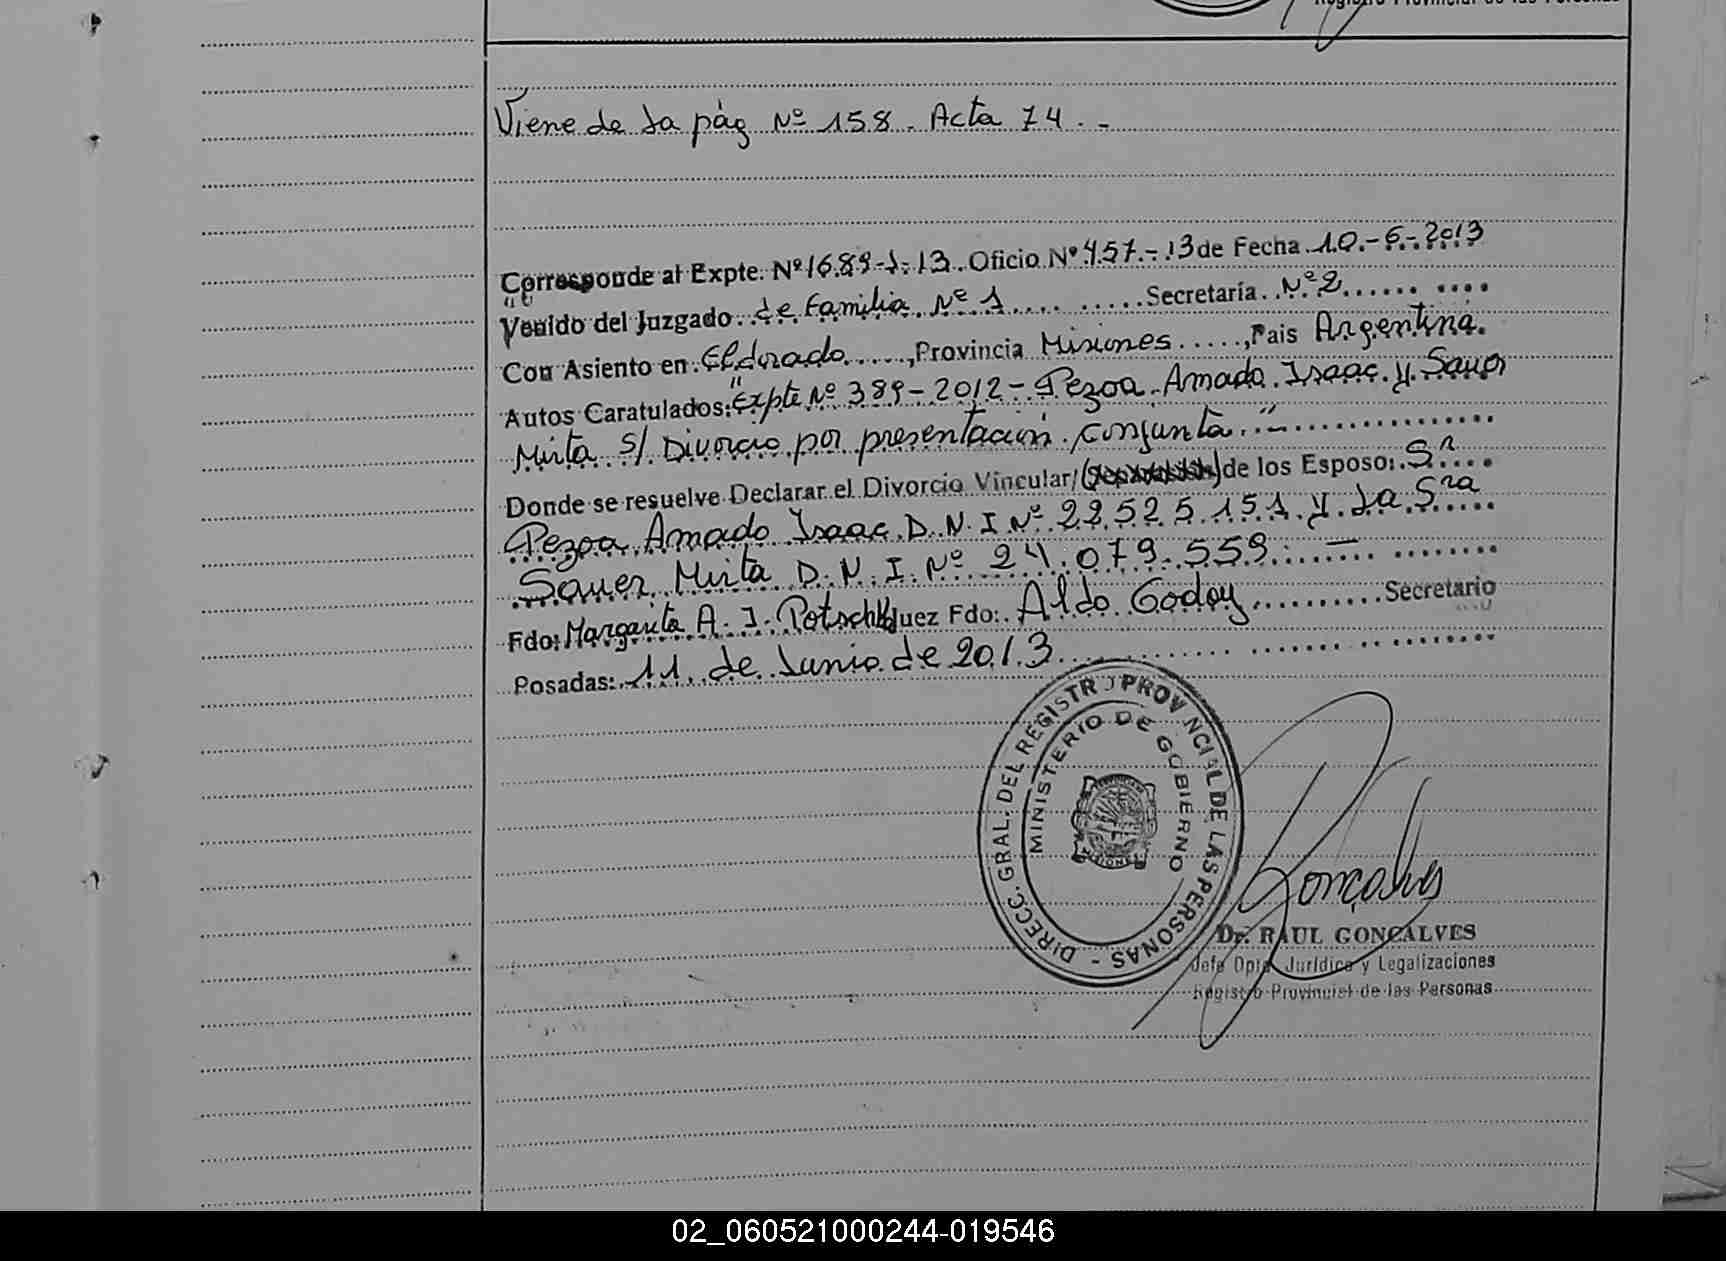 Registro Provincial de las Personas
Viene de la pág Nº 158. Acta 74. -
Corresponde al Expte. Nº 1689-J-13. Oficio Nº 457.-13 de Fecha 10.-6-2013
Venido del Juzgado de Familia Nº 1 Secretaría Nº 2
Con Asiento en Eldorado, Provincia Misiones, Pais Argentina.
Autos Caratulados: "Expte Nº 389-2012- Pezoa Amado Isaac y Sauer
Mirta s/ Divorcio por presentación conjunta." -
Donde se resuelve Declarar el Divorcio Vincular/ de los Esposo: Sr
Pezoa Amado Isaac D.N.I Nº 22.525.151 y la Sra
Sauer Mirta D.N.I. Nº 24.079.559. -
Fdo: Margarita A. J. Potschka Juez Fdo: Aldo Godoy Secretario
Posadas: 11 de Junio de 2013
DIRECC. GRAL. DEL REGISTRO PROVINCIAL DE LAS PERSONAS -
MINISTERIO DE GOBIERNO
MISIONES
Gonçalves
Dr. RAUL GONÇALVES
Jefe Dpto. Jurídico y Legalizaciones
Registro Provincial de las Personas
02_060521000244-019546